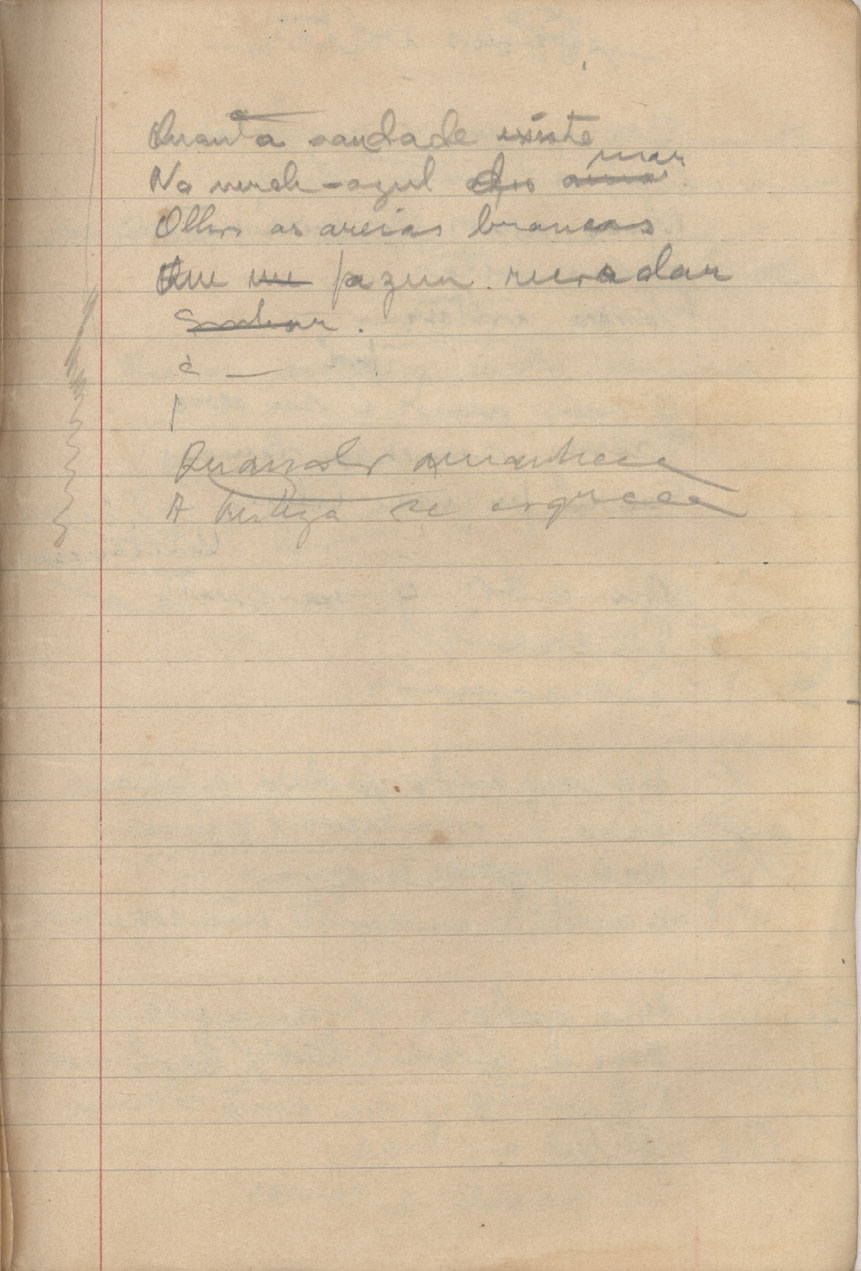 Quanta saudade existe
No verde-azul do mar
Olho as areias brancas
Que me fazem recordar
Sonhar.
e —
Quando amanhece
A tristeza se esquece